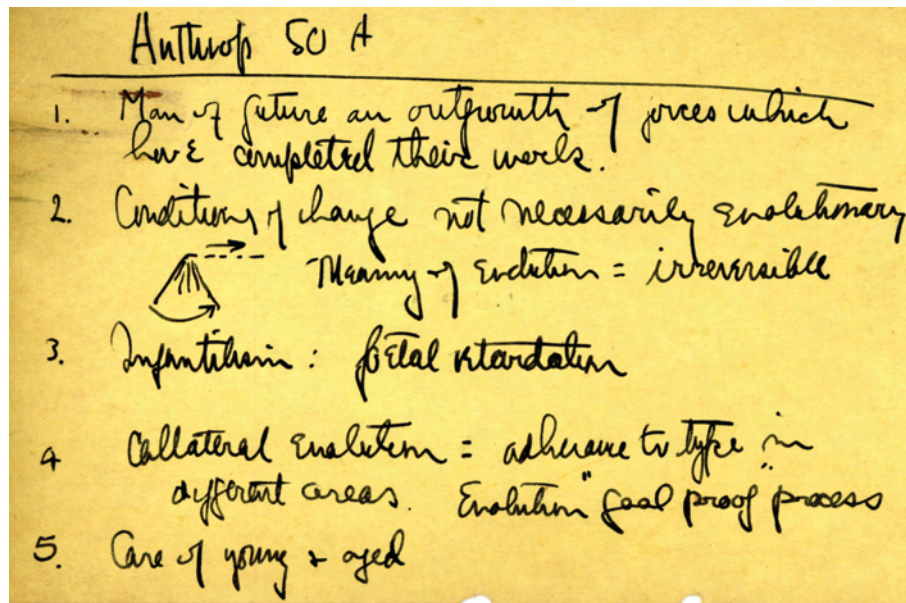 Anthrop 50 A
1. Man of future an outgrowth of forces which
have completed their work.
2. Conditions of change not necessarily evolutionary
Meaning of Evolution = irreversible
3. Infantilism : foetal retardation
4 Collateral Evolution = adherance to type in
different areas. Evolution "goal proof" process
5. Care of young & aged